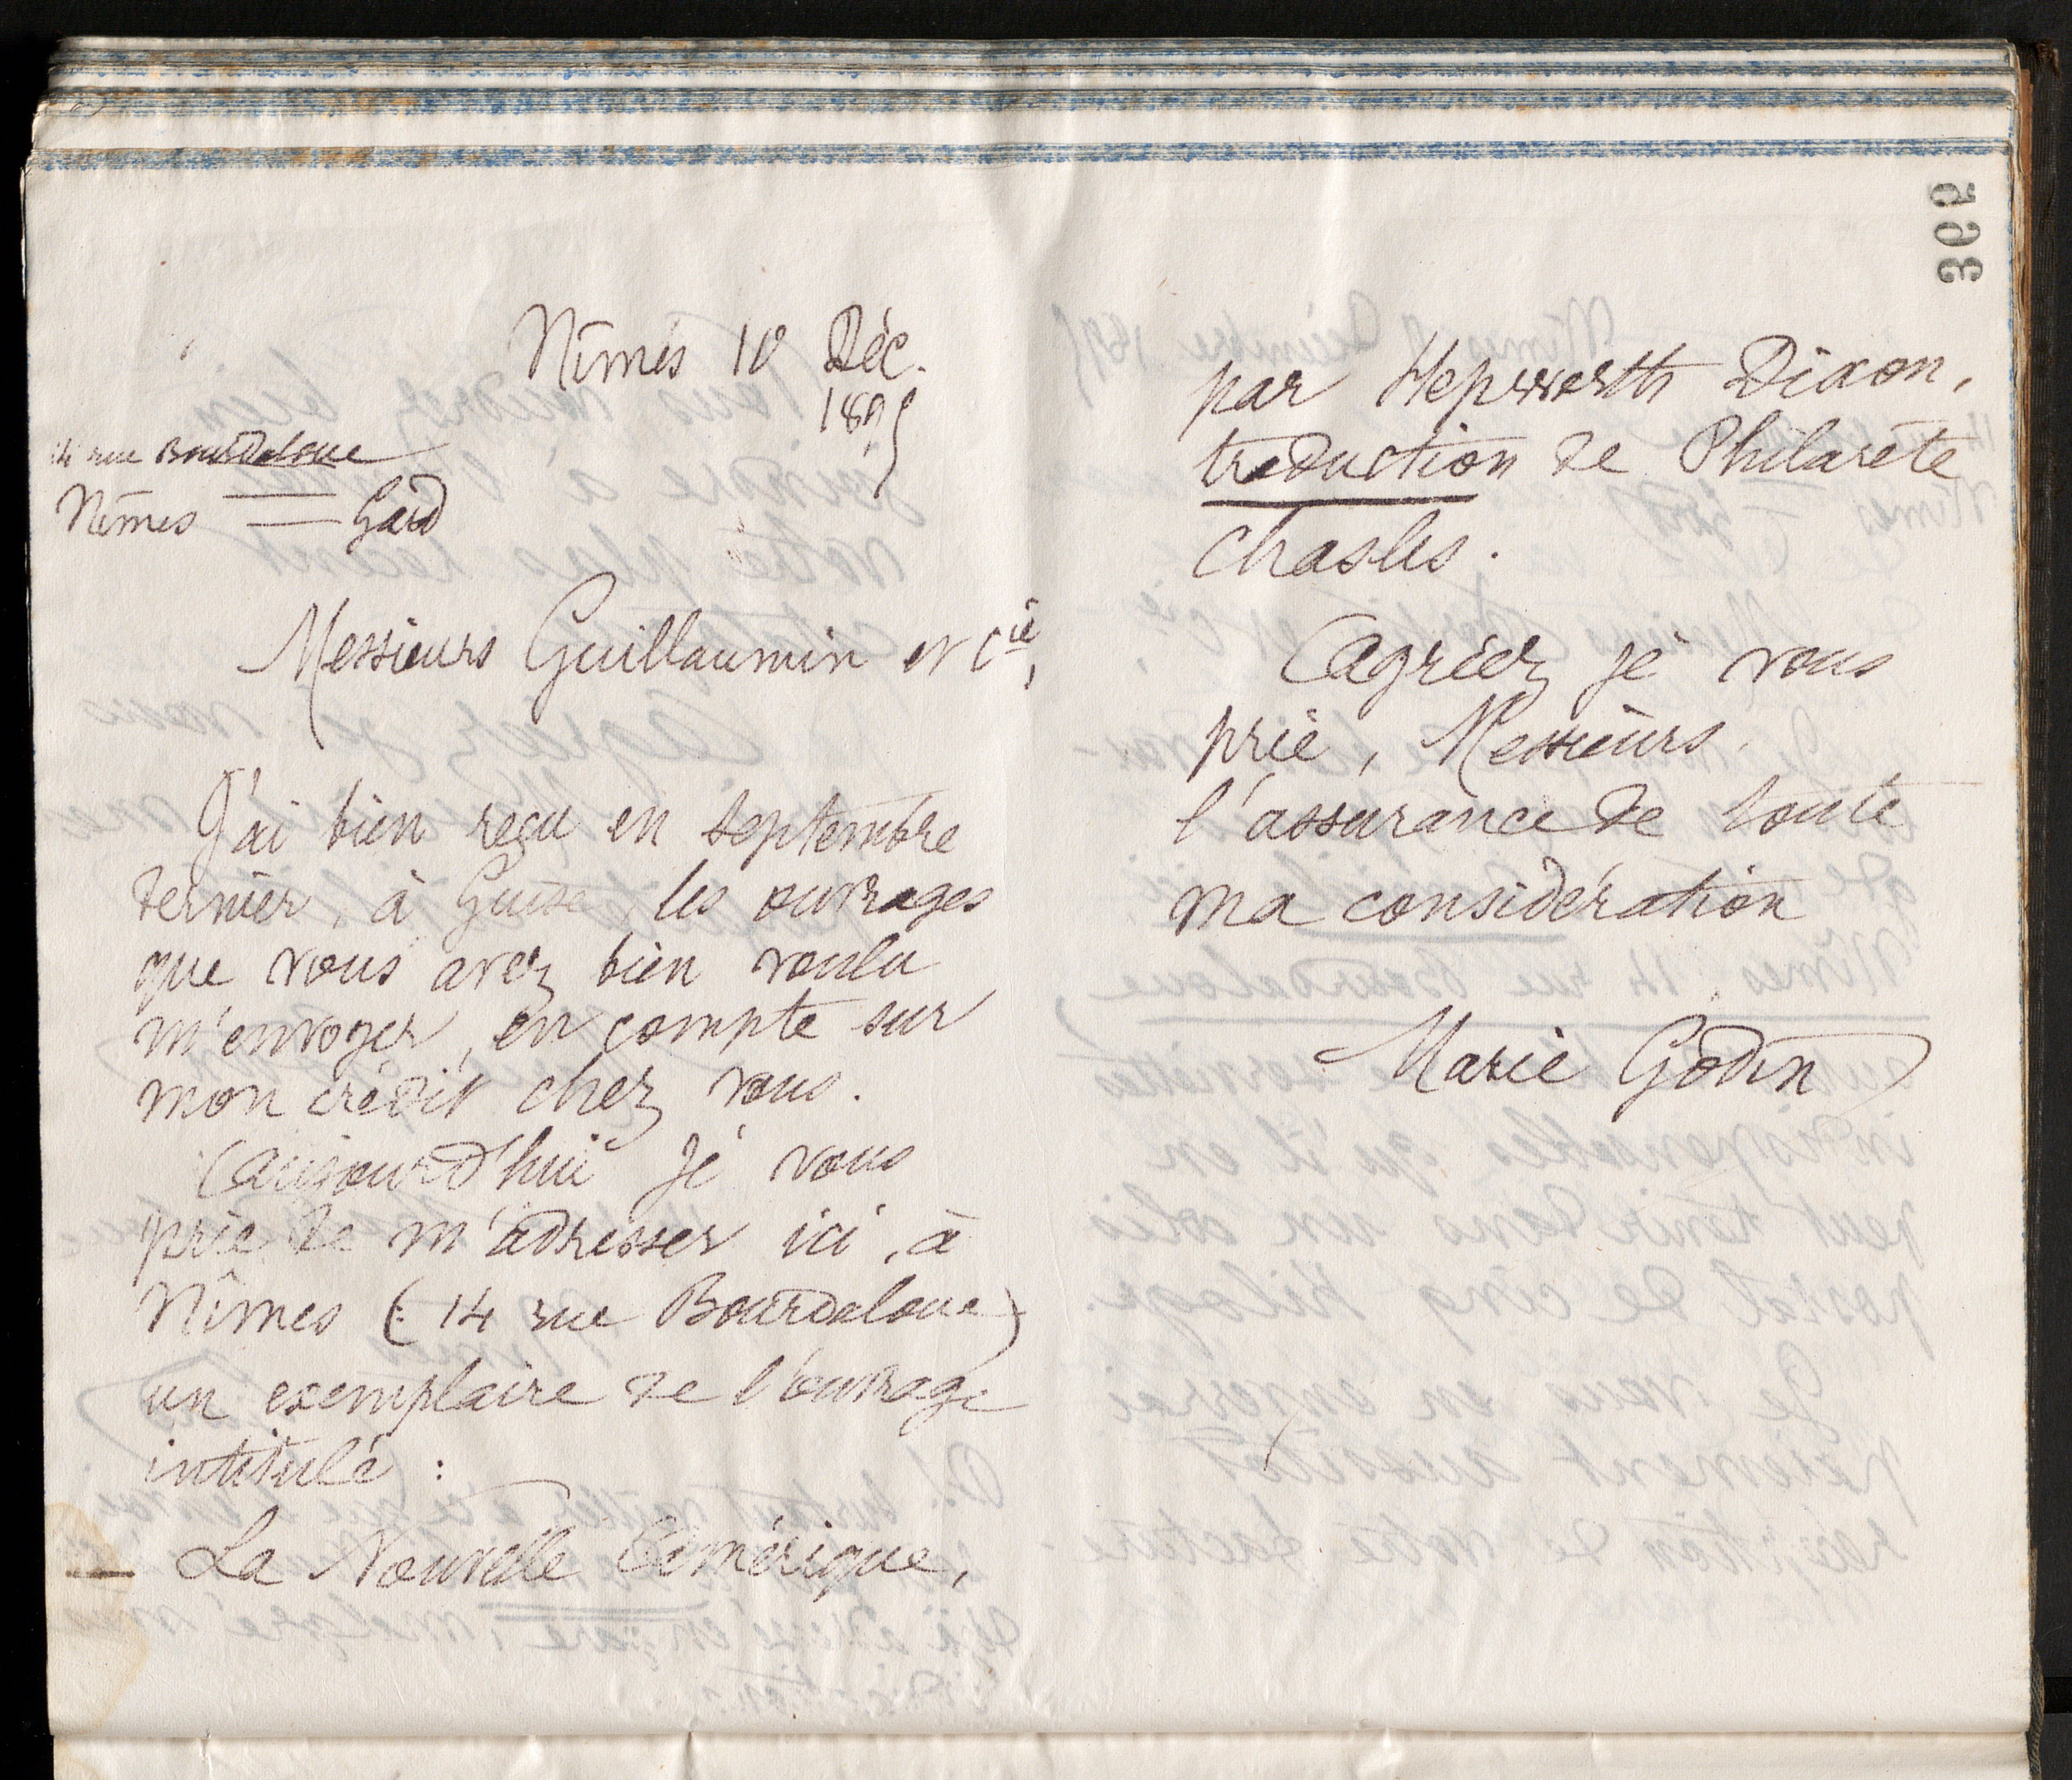 365
Nîmes 10 Déc.
14 rue Bourdaloue
Nîmes — Gard
Messieurs Guillaumin et Cie,
J'ai bien reçu en septembre
dernier, à Guise, les ouvrages
que vous avez bien voulu
m'envoyer, en compte sur
mon crédit chez vous.
Aujourd'hui je vous
prie de m'adresser ici, à
Nîmes (14 rue Bourdaloue)
un exemplaire de l'ouvrage
intitulé :
La Nouvelle Amérique,
par Hepworth Dixon,
traduction de Philarète
Chasles.
Agréez, je vous
prie, Messieurs,
l'assurance de toute
ma considération
Marie Godin